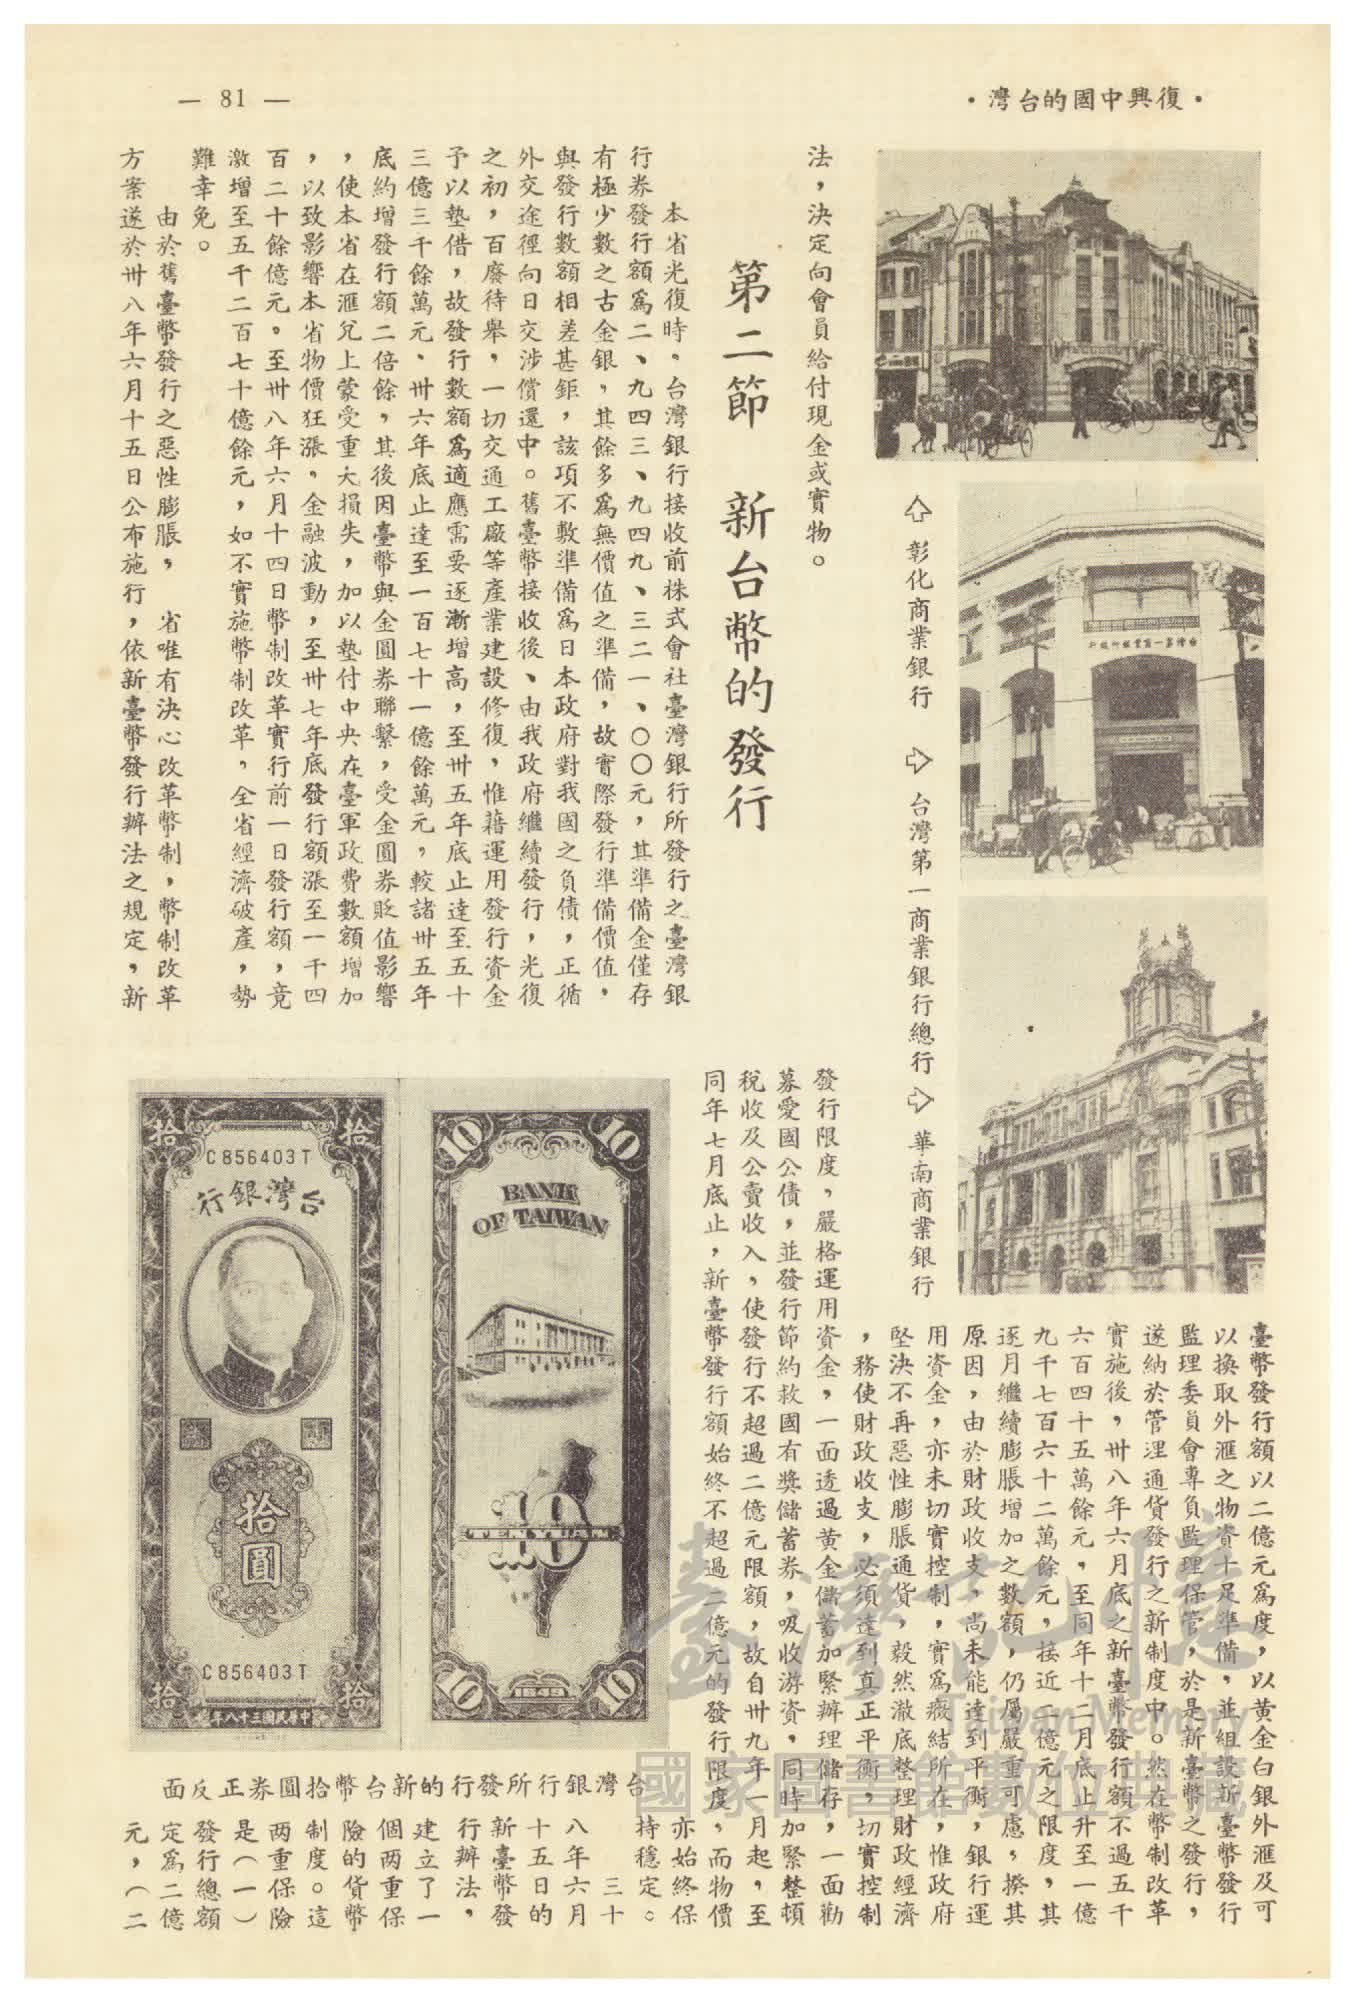 — 81 —
•灣台的國中興復•
法，決定向會員給付現金或實物。
第二節　新台幣的發行
本省光復時。台灣銀行接收前株式會社臺灣銀行所發行之臺灣銀
行券發行額爲二、九四三、九四九、三二一、〇〇元，其準備金僅存
有極少數之古金銀，其餘多爲無價值之準備，故實際發行準備價值，
與發行數額相差甚鉅，該項不敷準備爲日本政府對我國之負債，正循
外交途徑向日交涉償還中。舊臺幣接收後、由我政府繼續發行，光復
之初，百廢待舉，一切交通工廠等產業建設修復，惟藉運用發行資金
予以墊借，故發行數額爲適應需要逐漸增高，至卅五年底止達至五十
三億三千餘萬元、卅六年底止達至一百七十一億餘萬元，較諸卅五年
底約增發行額二倍餘，其後因臺幣與金圓券聯繫，受金圓券貶值影響
，使本省在滙兌上蒙受重大損失，加以墊付中央在臺軍政費數額增加
，以致影響本省物價狂漲，金融波動，至卅七年底發行額漲至一千四
百二十餘億元。至卅八年六月十四日幣制改革實行前一日發行額，竟
激增至五千二百七十億餘元，如不實施幣制改革，全省經濟破產，勢
難幸免。
由於舊臺幣發行之惡性膨脹，　省唯有決心改革幣制，幣制改革
方案遂於卅八年六月十五日公布施行，依新臺幣發行辦法之規定，新
彰化商業銀行
台灣第一商業銀行總行
華南商業銀行
台灣第一商業銀行總行
臺幣發行額以二億元爲度，以黃金白銀外滙及可
以換取外滙之物資十足準備，並組設新臺幣發行
監理委員會專負監理保管，於是新臺幣之發行，
遂納於管理通貨發行之新制度中。然在幣制改革
實施後，卅八年六月底之新臺幣發行額不過五千
六百四十五萬餘元，至同年十二月底止升至一億
九千七百六十二萬餘元，接近二億元之限度，其
逐月繼續膨脹增加之數額，仍屬嚴重可慮，揆其
原因，由於財政收支，尚未能達到平衡，銀行運
用資金，亦未切實控制，實爲癥結所在，惟政府
堅決不再惡性膨脹通貨，毅然澈底整理財政經濟
，務使財政收支，必須達到真正平衡，切實控制
發行限度，嚴格運用資金，一面透過黃金儲蓄加緊辦理儲存，一面勸
募愛國公債，並發行節約救國有獎儲蓄券，吸收游資，同時加緊整頓
稅收及公賣收入，使發行不超過二億元限額，故自卅九年一月起，至
同年七月底止，新臺幣發行額始終不超過二億元的發行限度，而物價
亦始終保
持穩定。
三十
八年六月
十五日的
新臺幣發
行辦法，
建立了一
個兩重保
險的貨幣
制度。這
兩重保險
是（一）
發行總額
定爲二億
元，（二
拾
拾
C856403T
行銀灣台
拾圓
C856403T
拾
拾
年八十三國民華中
10
10
BANK
OF TAIWAN
10
TEN YUAN
10
10
1949
面反正券圓拾幣台新的行發所行銀灣台
臺灣記憶
Taiwan Memory
國家圖書館數位典藏